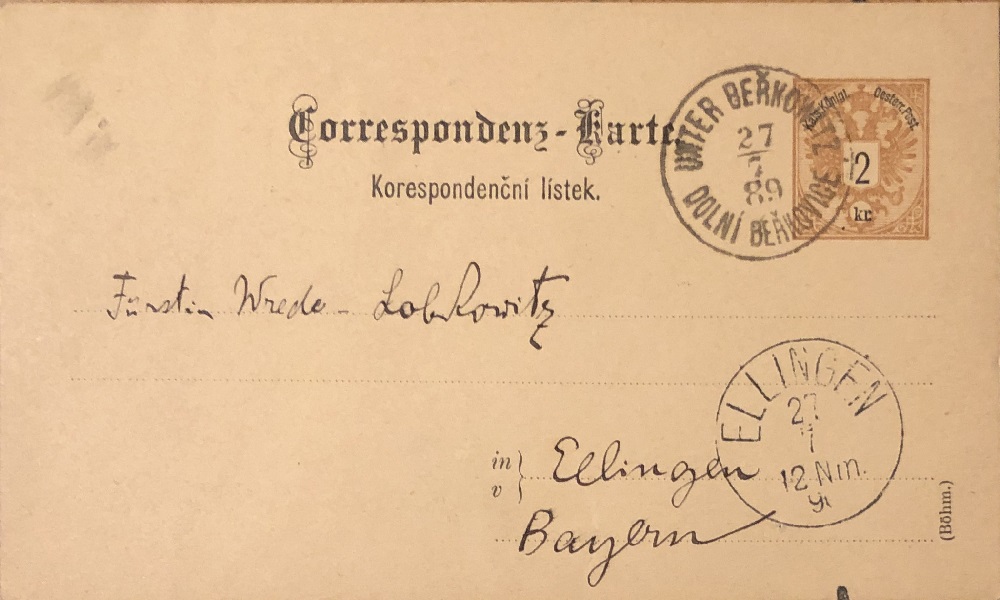 Correspondenz-Karte
Korespondenční lístek.
UNTER BEŘKOWITZ
27
7
89
DOLNÍ BEŘKOVICE
Kais. Königl. Oesterr. Post.
2
kr.
Fürstin Wrede - Lobkowitz
ELLINGEN
27
7
12 Nm.
in
v
Ellingen
Bayern
(Böhm.)